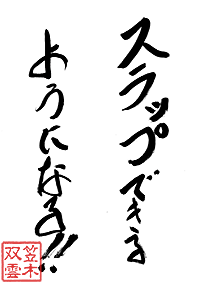 スラップできる
ようになる!!
笠木
双雲